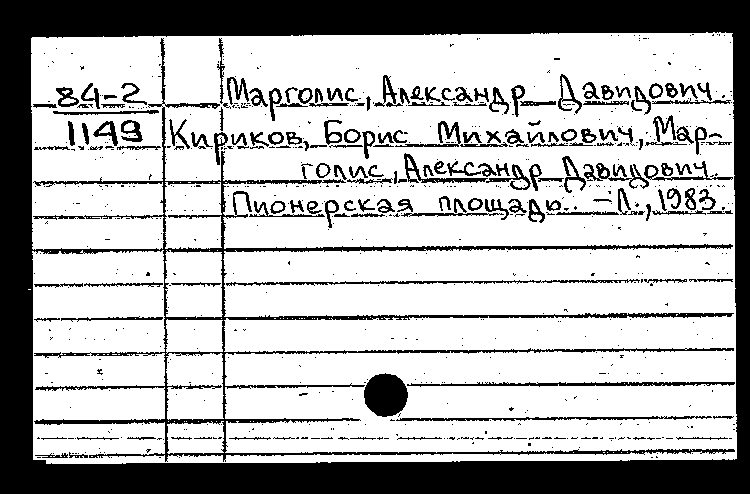 84-2 Марголис, Александр Давидович.
1149 Кириков, Борис Михайлович, Мар-
голис, Александр Давидович.
Пионерская площадь. – Л., 1983.